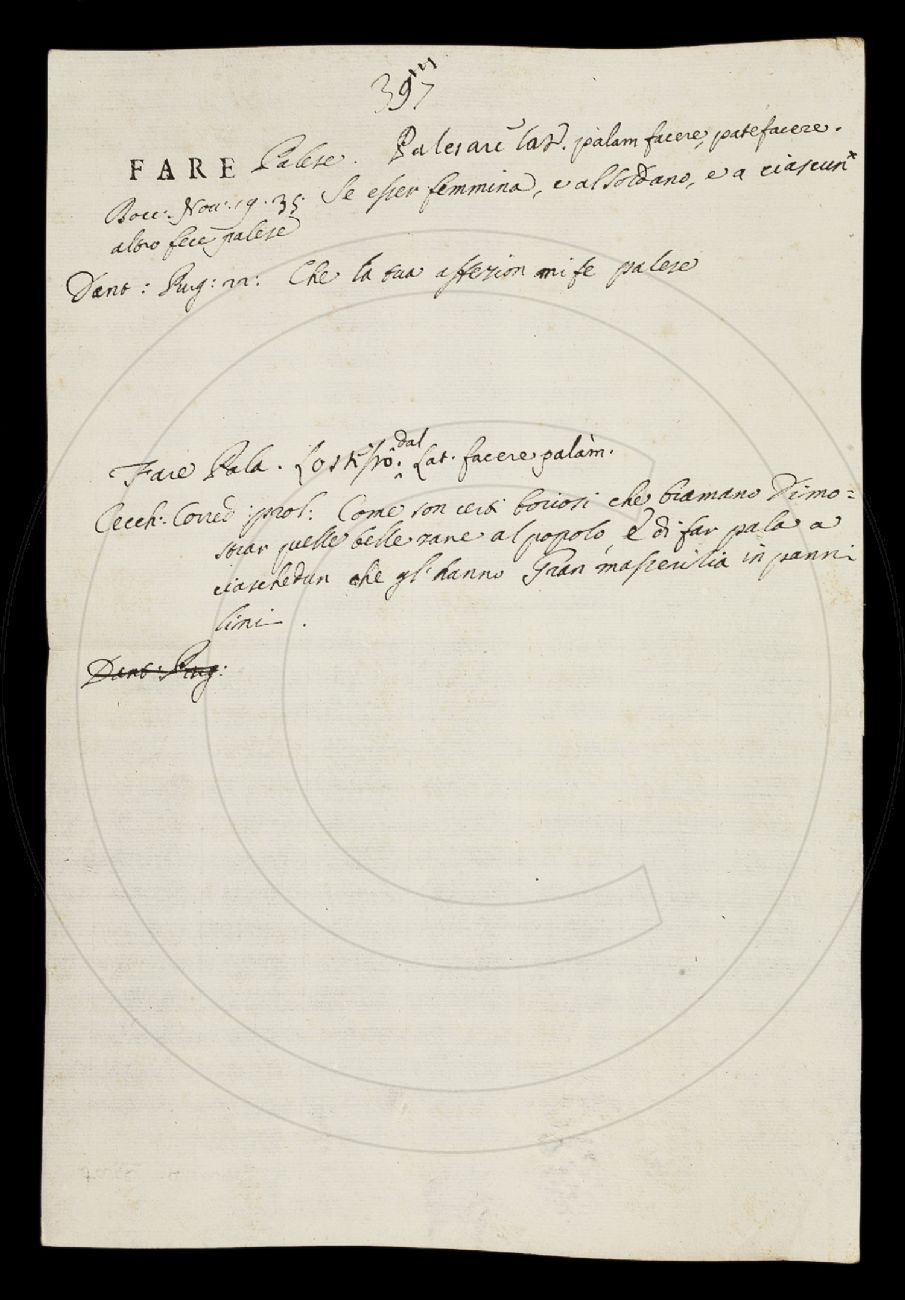 397
FARE Palese. Palesare lat. palam facere, patefacere.
Bocc: Nov: 19. 35. Se esser femmina, e al Soldano, e a ciascun
altro fece palese
Dant: Purg: 22: Che la tua affezion mi fe palese
Fare Pala. Lo stesso. dal Lat. facere palàm.
Cecch: Corred: prol: Come son certi boriosi che bramano Dimo=
strar quelle belle zane al popolo, e di far pala a
ciaschedun che gl'hanno Gran masserilia in panni
lini.
Dant: Purg: